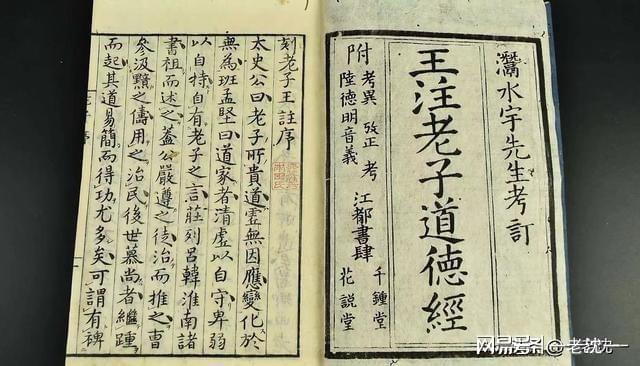 灊水宇先生考訂
王注老子道德經
附 考異 攷正 考
陸德明音義
江都書肆
千鍾堂
花説堂
刻老子王註序
太史公曰老子所貴道虛無因應變化於
無為班孟堅曰道家者清虛以自守卑弱
以自持自有老子之言莊列呂韓淮南諸
書祖而述之蓋公嚴遵之徒治而推之曹
參汲黯之儔用之治民後世慕尚者繼踵
而起其道易簡而得功尤多矣可謂有裨
网易号
老沈九一